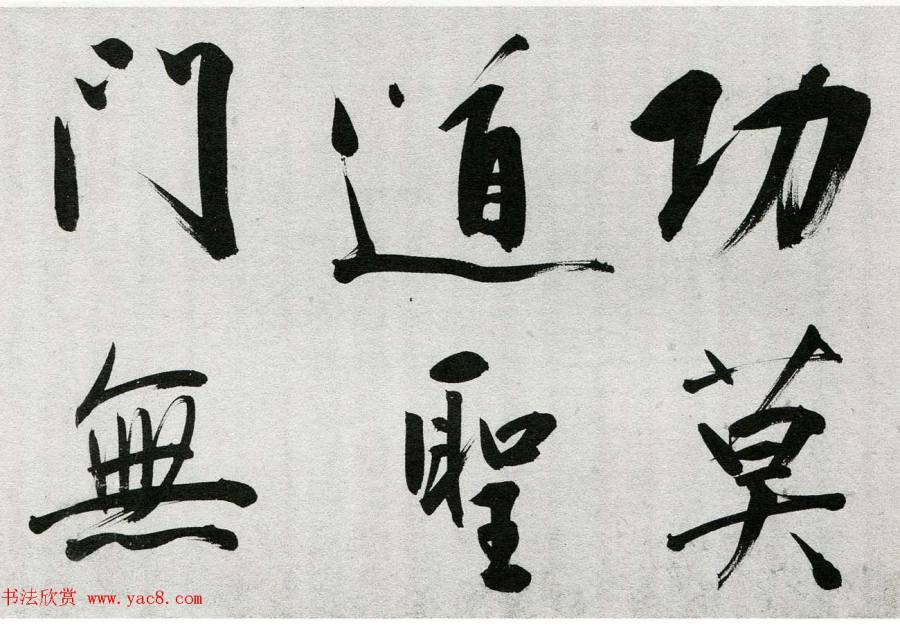 功莫
道聖
门無
书法欣赏 www.yac8.com